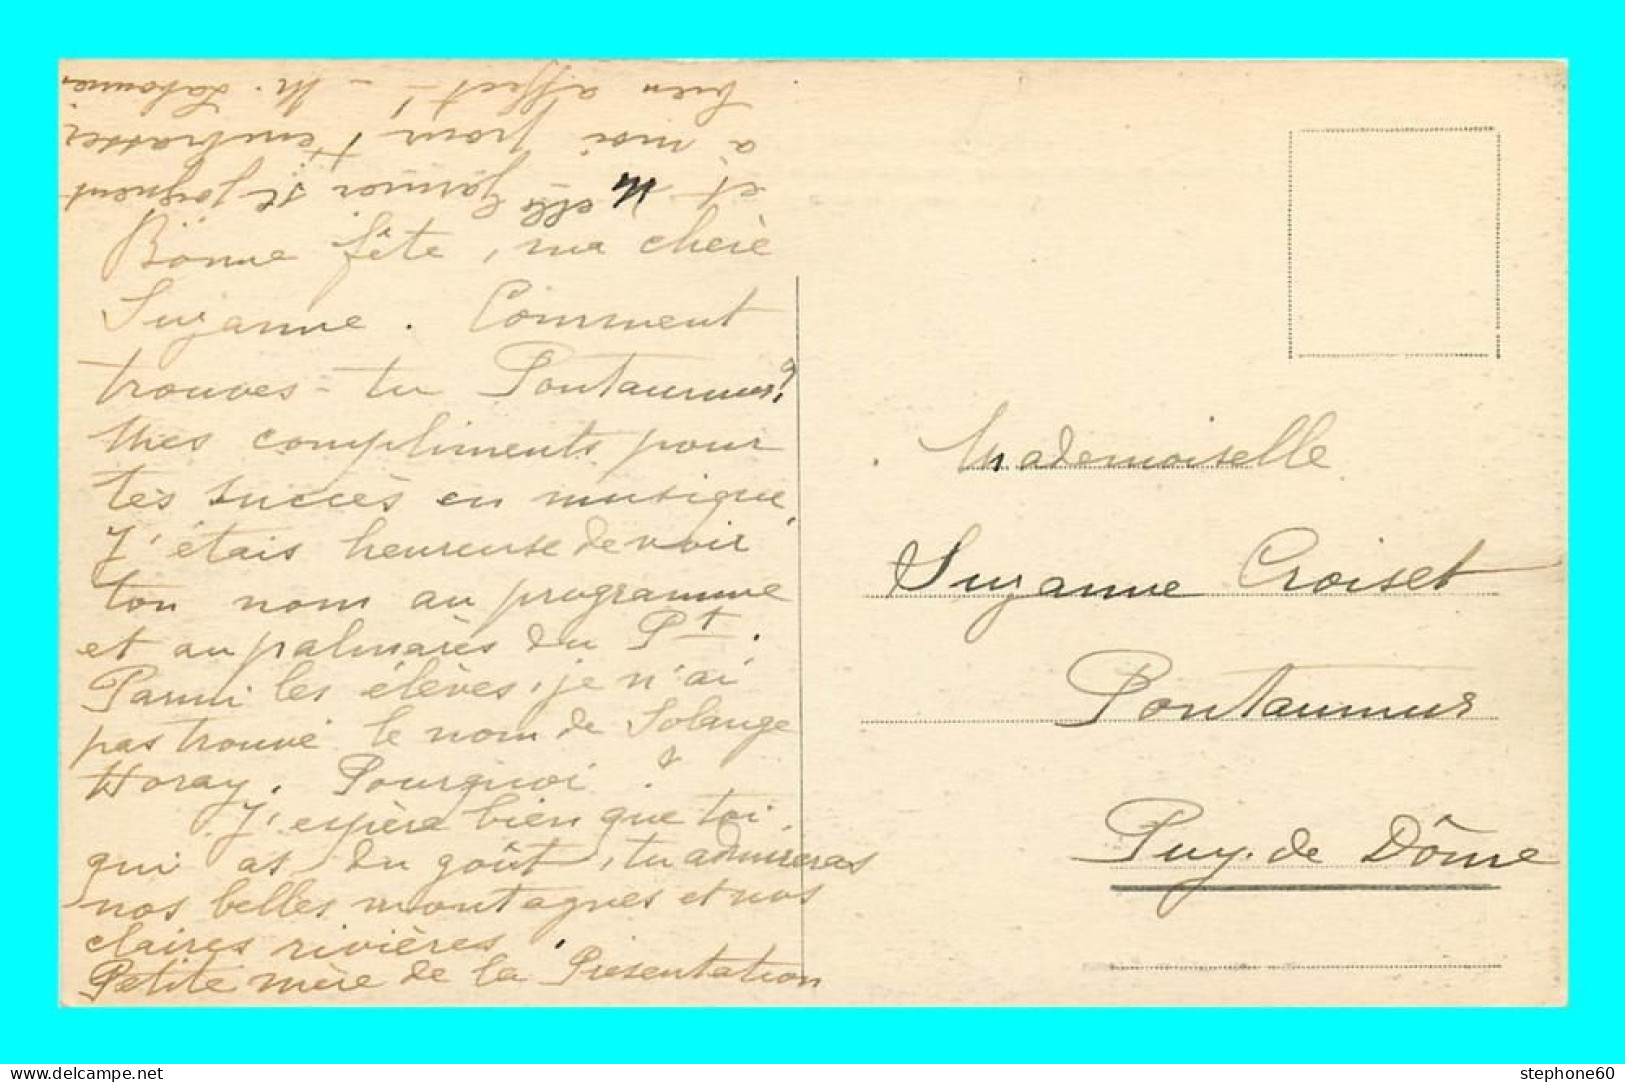 Bonne fête, ma chère
Suzanne. Comment
trouves-tu Pontaumur?
Mes compliments pour
tes succès en musique.
J'étais heureuse de voir
ton nom au programme
et au palmarès du Pt.
Parmi les élèves, je n'ai
pas trouvé le nom de Solange
Horay. Pourquoi ?
J'espère bien que toi
qui as du goût, tu admireras
nos belles montagnes et nos
claires rivières.
Petite mère de la Présentation
et Melle Garnier se joignent
à moi pour t'embrasser
bien affectt - M.
Mademoiselle
Suzanne Croiset
Pontaumur
Puy-de Dôme
www.delcampe.net
stephone60